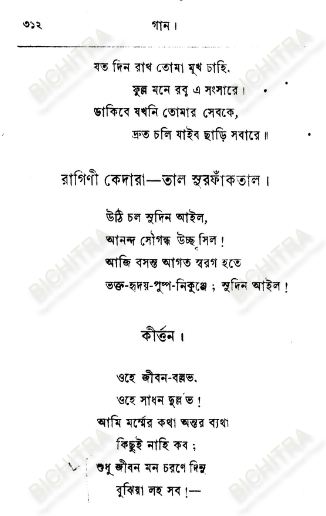 ৩১২
গান।
যত দিন রাখ তোমা মুখ চাহি.
ফুল্ল মনে রবু এ সংসারে।
ডাকিবে যখনি তোমার সেবকে,
দ্রুত চলি যাইব ছাড়ি সবারে॥
রাগিণী কেদারা—তাল সুরফাঁকতাল।
উঠি চল সুদিন আইল,
আনন্দ সৌগন্ধ উচ্ছ্বসিল!
আজি বসন্ত আগত স্বরগ হতে
ভক্ত-হৃদয়-পুষ্প-নিকুঞ্জে; সুদিন আইল!
কীর্ত্তন।
ওহে জীবন-বল্লভ.
ওহে সাধন দুল্লভ!
আমি মর্ম্মের কথা অন্তর ব্যথা
কিছুই নাহি কব;
শুধু জীবন মন চরণে দিনু
বুঝিয়া লহ সব!—
BICHITRA
BICHITRA
BICHITRA
BICHITRA
BICHITRA
BICHITRA